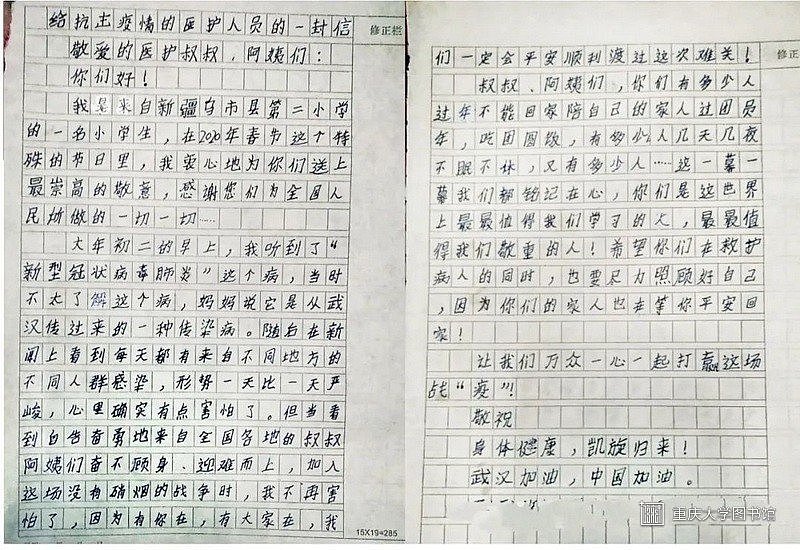 给抗击疫情的医护人员的一封信
修正栏
敬爱的医护叔叔，阿姨们：
你们好！
我是来自新疆乌市县第二小学
的一名小学生，在2020年春节这个特
殊的节日里，我衷心地为你们送上
最崇高的敬意，感谢您们为全国人
民所做的一切一切……
大年初二的早上，我听到了“
新型冠状病毒肺炎”这个病，当时
不太了解这个病，妈妈说它是从武
汉传过来的一种传染病。随后在新
闻上看到每天都有来自不同地方的
不同人群感染，形势一天比一天严
峻，心里确实有点害怕了。但当看
到自告奋勇地来自全国各地的叔叔
阿姨们奋不顾身、迎难而上，加入
这场没有硝烟的战争时，我不再害
怕了，因为有你在，有大家在，我
15X19=285
们一定会平安顺利渡过这次难关！
修正
叔叔、阿姨们，你们有多少人
过年不能回家陪自己的家人过团员
年，吃团圆饭，有多少人几天几夜
不眠不休，又有多少人……这一幕一
幕我们都铭记在心，你们是这世界
上最最值得我们学习的人，最最值
得我们敬重的人！希望你们在救护
病人的同时，也要尽力照顾好自己
，因为你们的家人也在等你平安回
家！
让我们万众一心一起打赢这场
战“疫”！
敬祝
身体健康，凯旋归来！
武汉加油，中国加油。
重庆大学图书馆